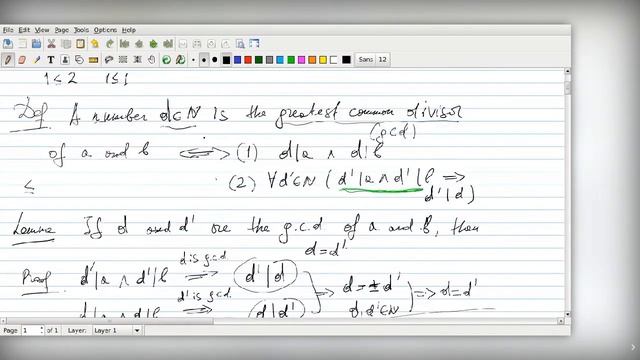 File Edit View Page Tools Options Help
Sans 12
1 ≤ 2 1 ≤ 1
Def. A number d∈ℕ is the greatest common divisor
(gcd)
of a and b ⟺ (1) d|a ∧ d|b
≤ (2) ∀d'∈ℕ (d'|a ∧ d'|b ⟹
d'|d)
Lemma If d and d' are the g.c.d of a and b, then
d = d'
Proof d'|a ∧ d'|b d is g.c.d. ⟹ d'|d
⟹ d = ± d' ⟹ d = d'
d|a ∧ d|b d' is g.c.d. ⟹ d|d' d, d'∈ℕ
Page 1 of 1 Layer: Layer 1